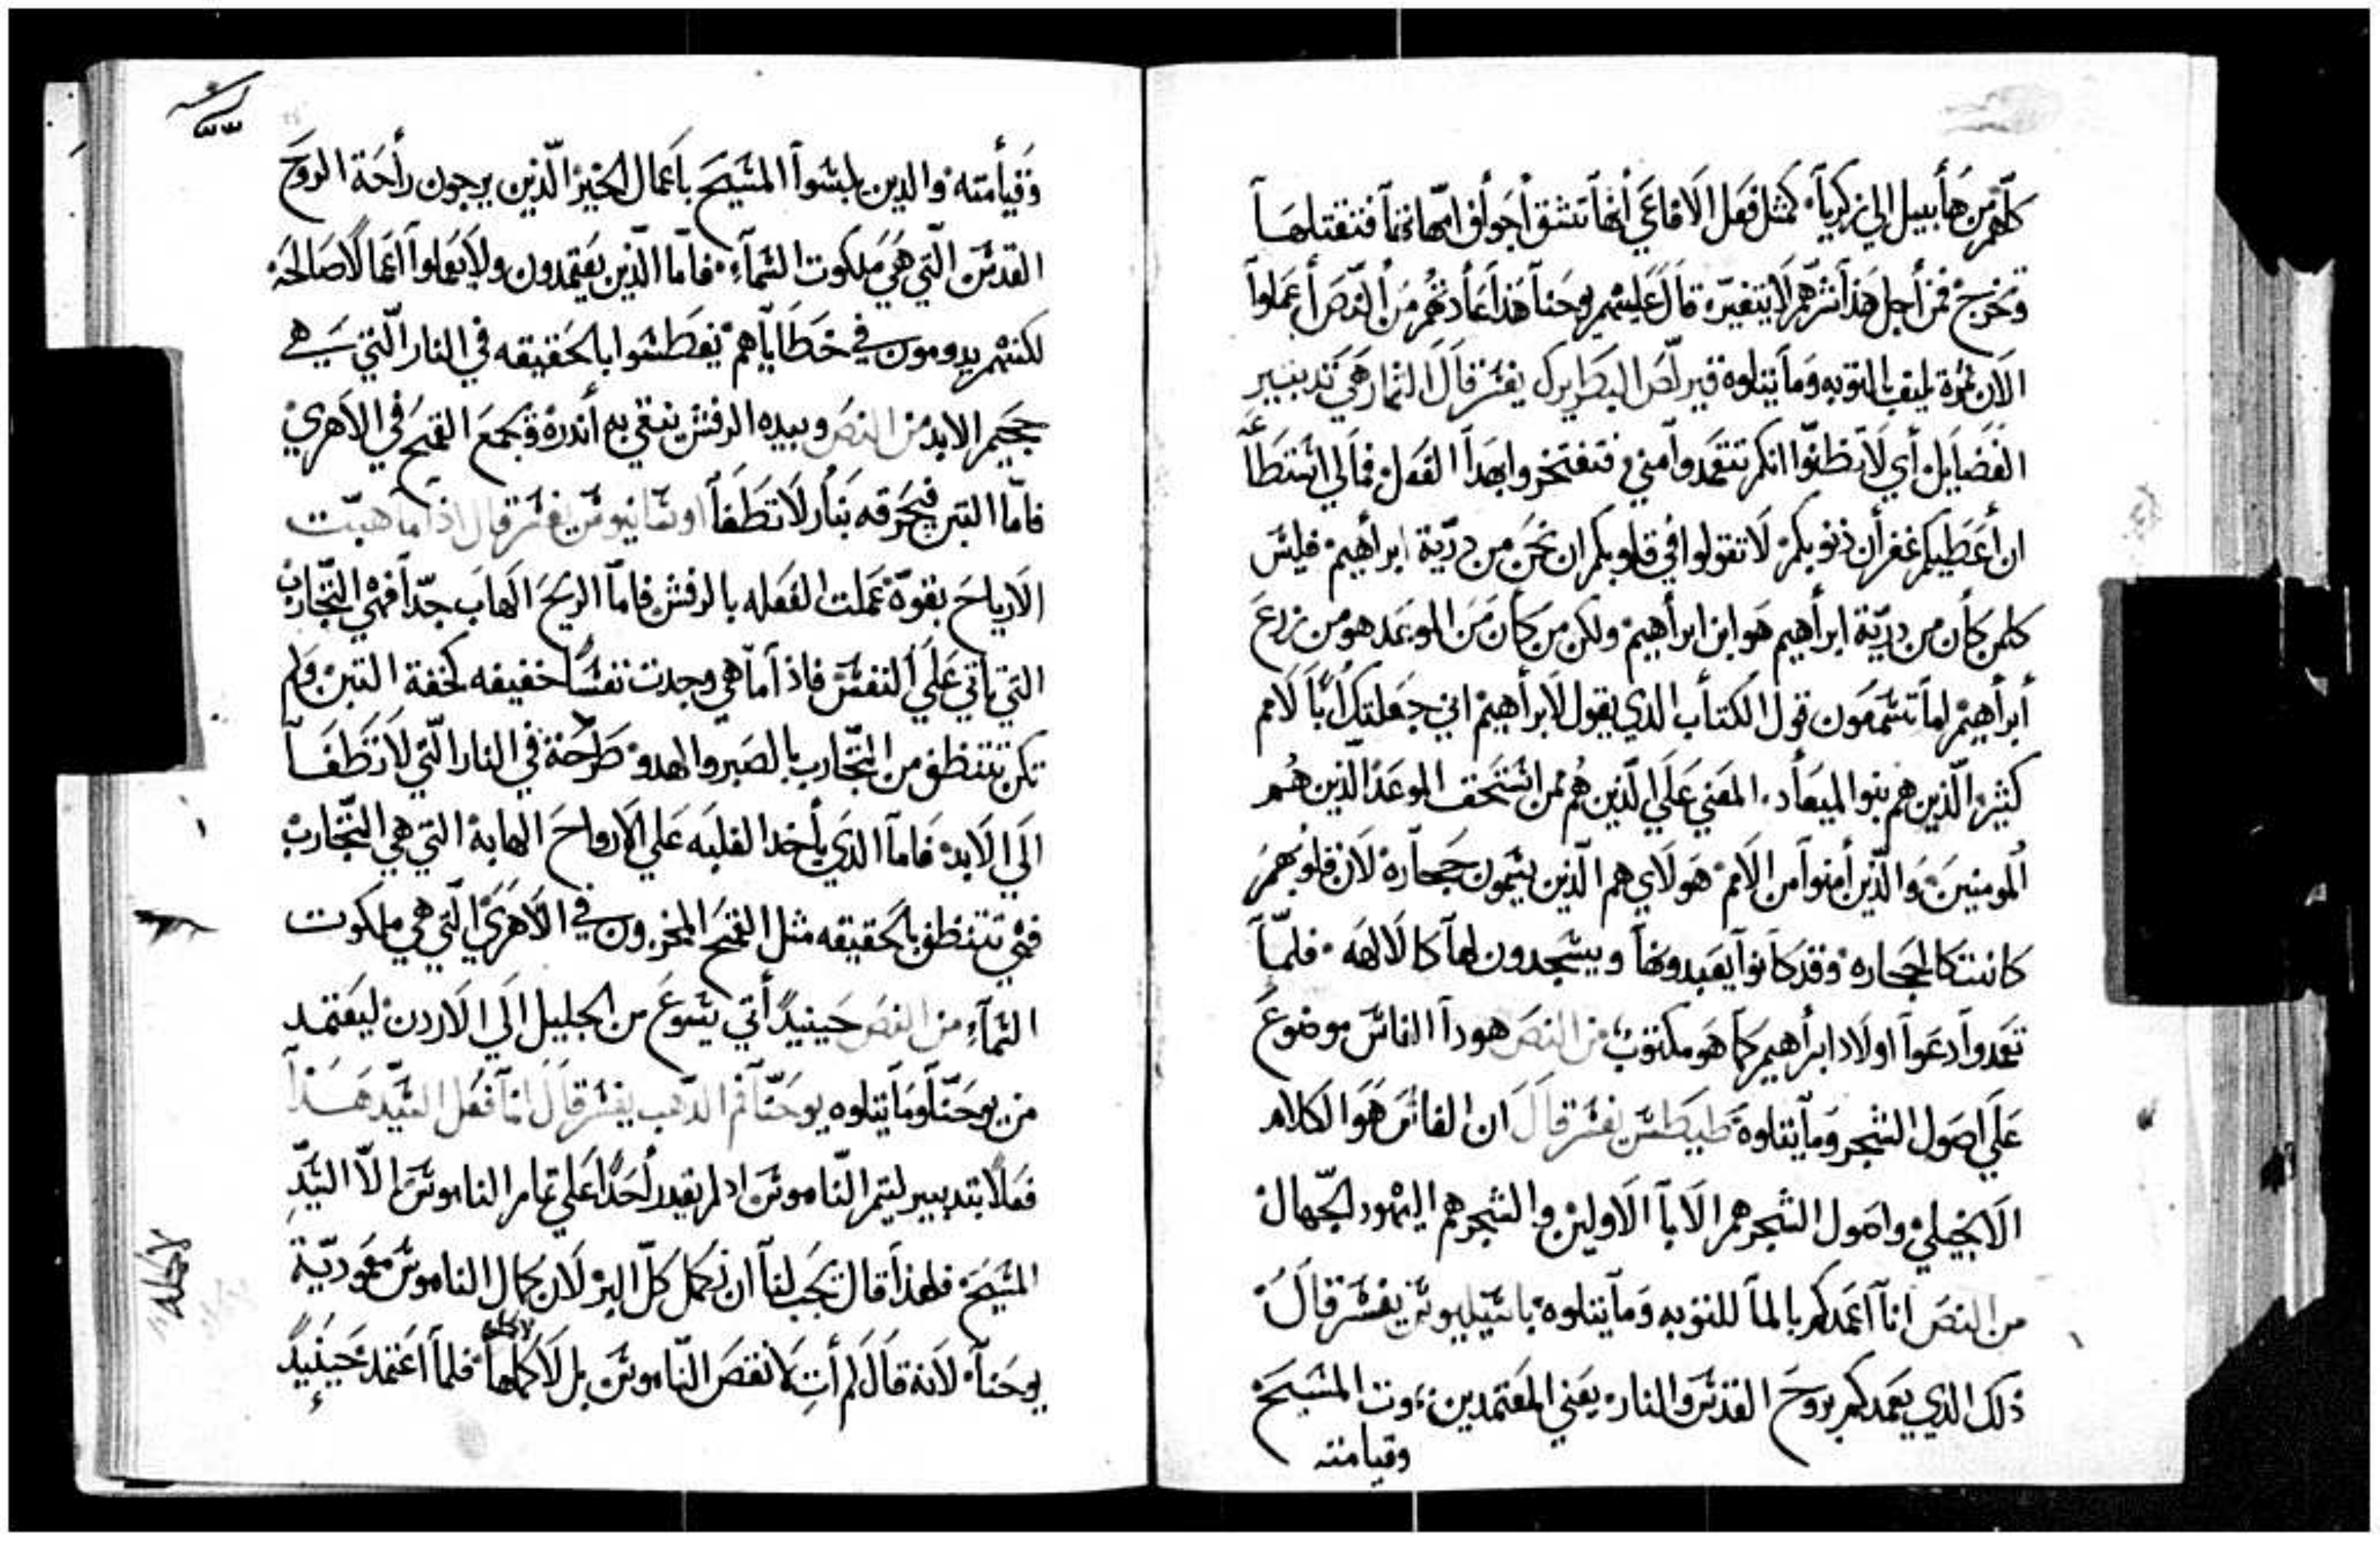 كلهم من هابيل الي زكريا كمثل فعل الافاعي انها تشق اجواف امهاتها فتقتلها
وتخرج فمن اجل هذا شرهم لا يتغير قال عليهم يوحنا هذا عادتهم من النص اعملوا
الان ثمرة تليق بالتوبه وما يتلوه قيرلص البطريرك يفسر قال الثمار هي تدبيير
الفضايل اي لا تظنوا انكم تتعمدوا مني فتفتخروا بهدا الفعل فمالي استطاعة
ان اعطيكم غفران ذنوبكم لا تقولوا في قلوبكم ان نحن من دريّة ابراهيم فليس
كلمن كان من دريّة ابراهيم هو ابن ابراهيم ولكن من كان من الموعد هو من زرع
ابراهيم اما تسمعون قول الكتاب الدي يقول لابراهيم اني جعلتك ابًا لامم
كثير الّذين هم بنو الميعاد المعني علي الّذين هم ممن استحق الموعد الّذين هم
المومنين والّذين امنوا من الامم هولاي هم الّذين يسمون حجارة لان قلوبهم
كانت كالحجاره وقد كانوا يعبدونها ويسجدون لها كالالهه فلمّا
تعمدوا دعوا اولاد ابراهيم كما هو مكتوب من النص هودا الفاس موضوع
علي اصول الشجر وما يتلوه طيطس يفسر قال ان الفاس هو الكلام
الانجيلي واصول الشجر هم الابا الاولين والشجر هم اليهود الجّهال
من النص انا اعمدكم بالما للتوبه وما يتلوه باسيليوس يفسر قال
ذلك الدي يعمدكم بروح القدس والنار يعني المعتمدين موت المسيح
وقيامته
وقيامته والدين لبسوا المسيح باعمال الخير الّذين يرجون راحة الروح
القدس الّتي هي ملكوت السماء فامّا الّذين يعتمدون ولا يعملوا اعمالا صالحه
لكنهم يدومون في خطاياهم يغطسوا بالحقيقه في النار الّتي هي
جحيم الابد من النص وبيده الرفش ينقي به اندره ويجمع القمح في الاهري
فامّا التبن فيحرقه بنار لا تطفا اوسانيوس يفسر قال اذا ما هبّت
الارياح بقوّة عملت الفعله بالرفش فامّا الريح الهاب جدّا فهي التّجارب
التي تاتي علي النفس فاذا ما هي وجدت نفسًا خفيفه كخفة التبن ولم
تكن تتنظف من التّجارب بالصبر والهدو طرحته في النار الّتي لا تطفا
الي الابد فاما الدي ياخد الغلبه علي الارواح الهابة التي هي التّجارب
فهي تتنظف بالحقيقه مثل القمح المخزون في الاهري الّتي هي ملكوت
السماء من النص حينيدًا اتي يسوع من الجليل الي الاردن ليعتمد
من يوحنّا وما يتلوه يوحنّا فم الدهب يفسر قال انما فعل السيّد هذا
فعلا بتدبيير ليتم النّاموس اد لم يقدر احدًا علي تمام الناموس الاّ السّيّد
المسيح فلهذا قال يجب لنا ان نكمل كلّ البر لان كمال الناموس معموديّة
يوحنا لانه قال لم أت لانقص النّاموس بل لاكملها فلما اعتمد حينيدًا